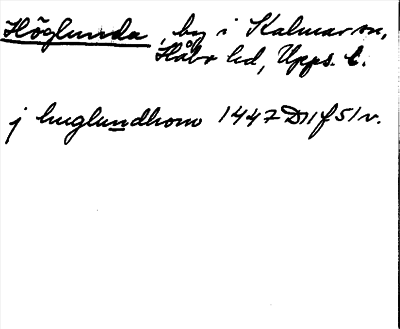 Höglunda, by i Kalmar sn,
Håbo hd, Upps. l.
j huglundhom 1447 D11 f 51 v.